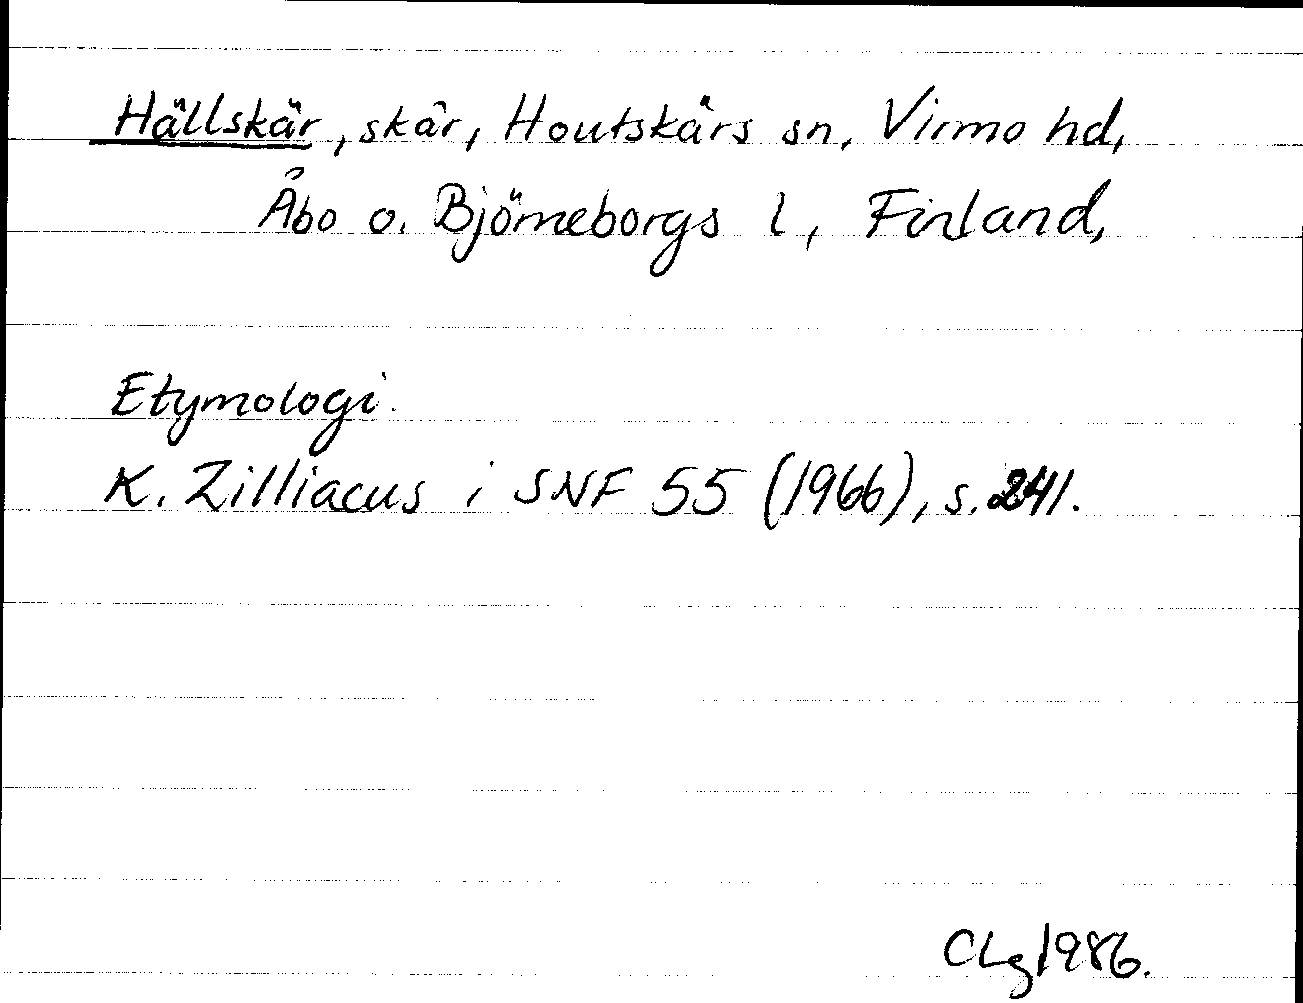 Hällskär, skär, Houtskärs sn, Virmo hd,
Åbo o. Björneborgs l, Finland,
Etymologi.
K. Zilliacus i SNF 55 (1966), s. 241.
CLg 1986.